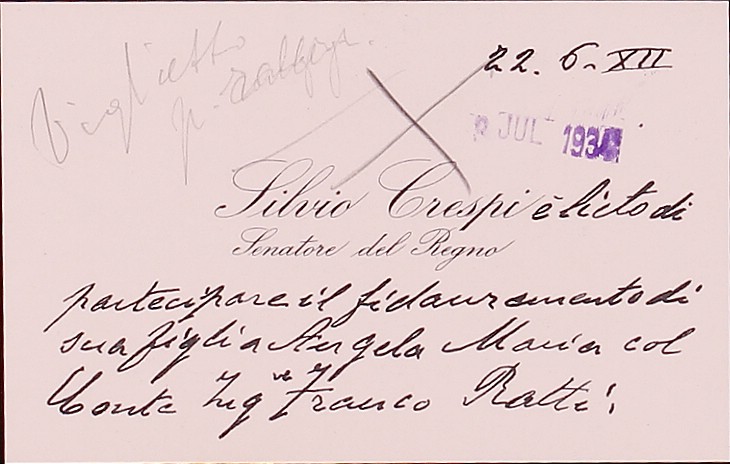 Biglietto
p.
22. 6. XII
JUL 1934
Silvio Crespi è lieto di
Senatore del Regno
partecipare il fidanzamento di
sua figlia Angela Maria col
Conte Ing.re Franco Ratti.